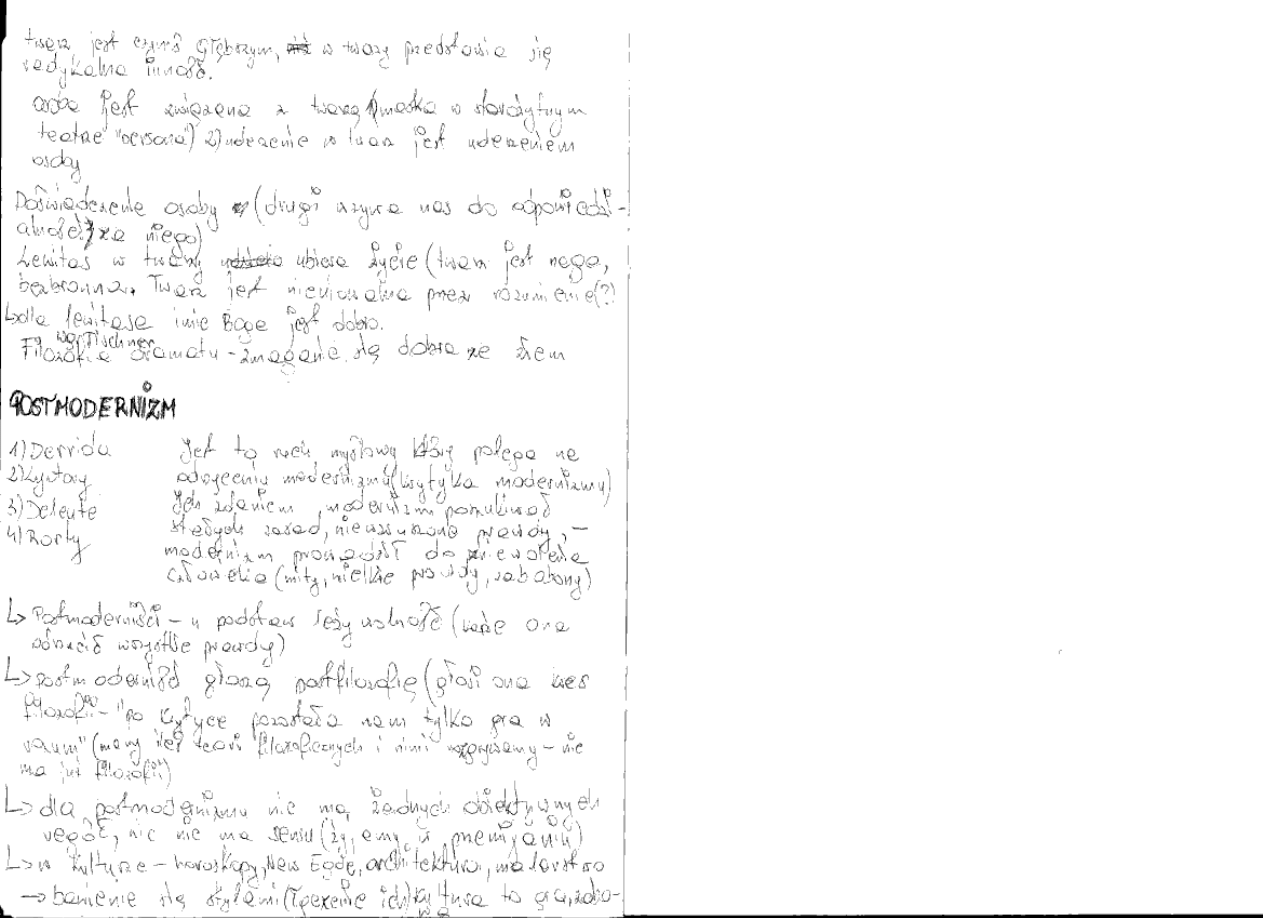 twarz jest czymś głębszym, w twarzy przedstawia się
radykalna inność.
osoba jest związana z twarzą 1) maska w starożytnym
teatrze "persona") 2) uderzenie w twarz jest uderzeniem
osoby
Doświadczenie osoby (drugi wzywa nas do odpowiedzi-
alności za niego)
Lewitas w twarzy ubiera życie (twarz jest naga,
bezbronna. Twarz jest niewidzialna przez rozumienie(?)
↳ dla lewitasa imię Boga jest dobro.
wg Tischner
Filozofia dramatu - zmaganie się dobra ze złem
POSTMODERNIZM
1) Derrida
2) Lyotary
3) Deleute
4) Rorty
Jest to ruch myślowy który polega na
odrzuceniu modernizmu (krytyka modernizmu)
Ich zdaniem, modernizm poszukiwał
stałych zasad, niewzruszone prawdy, -
modernizm prowadził do zniewolenia
człowieka (mity, wielkie prawdy, zabobony)
↳ Postmoderniści - u podstaw leży wolność (każe ona
odrzucić wszystkie prawdy)
↳ postmoderniści głoszą postfilozofię (głosi ona kres
filozofii - "po krytyce pozostała nam tylko gra w
rozum" (mamy ileś teorii filozoficznych i nimi rozgrywamy - nie
ma już filozofii)
↳ dla postmodernizmu nie ma żadnych obiektywnych
reguł, nic nie ma sensu (żyjemy w przemijaniu)
↳ w kulturze - horoskopy, New Egde, architektura, malarstwo
→ bawienie się stylami (łączenie ich) kultura to gra, zaba-
wa